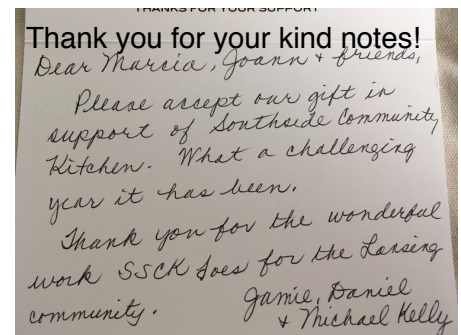 THANKS FOR YOUR SUPPORT
Thank you for your kind notes!
Dear Marcia, Joann + friends,
Please accept our gift in
support of Southside Community
Kitchen. What a challenging
year it has been.
Thank you for the wonderful
work SSCK does for the Lansing
community.
Jamie, Daniel
+ Michael Kelly